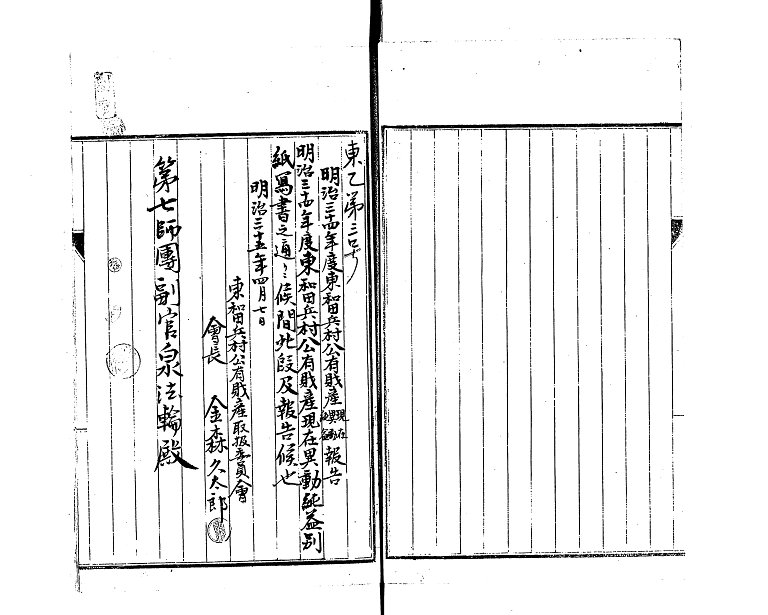 東乙第三号
明治三十四年度東和田兵村公有財産現在異動純益報告
明治三十四年度東和田兵村公有財産現在異動純益別
紙寫書之通ニ候間此段及報告候也
明治三十五年四月七日
東和田兵村公有財産取扱委員會
會長 金森久太郎
第七師團副官泉法輪殿